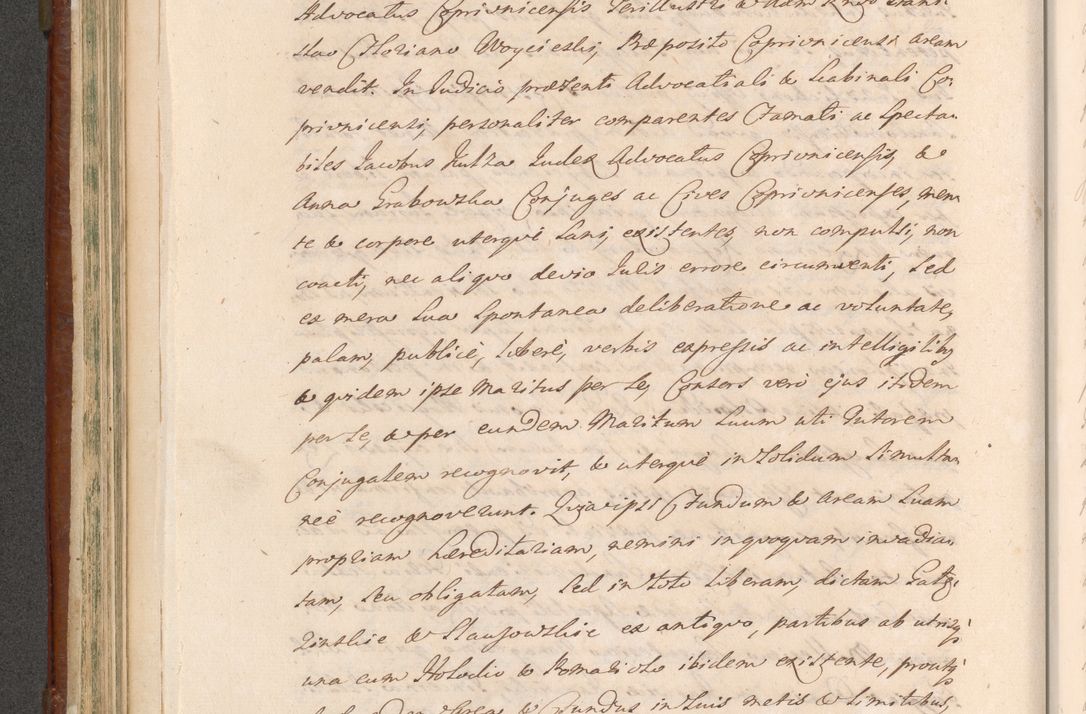 Advocatus Coprivnicensis Perillustri & Adm Rndo Stani
slao Floriano Woycieski, Præposito Coprivnicensi Aream
vendit. In Judicio præsenti Advocatiali & Scabinali Co-
privnicensi, personaliter comparentes Famati ac Specta-
biles Jacobus Kulza Judex Advocatus Coprivnicensis, &
Anna Grabowska Conjuges ac Cives Coprivnicenses, men
te & corpore uterquè sani, existentes, non compulsi, non
coacti, nec aliquo devio Juris errore circumventi, Sed
ex mera Sua Spontanea deliberatione ac voluntate,
palam, publicè, liberè, verbis expressis ac intelligilibus
& quidem ipse Maritus per se, Consors verò ejus itidem
per se, & per eundem Maritum Suum uti Tutorem
Conjugalem recognovit, & uterquè in Solidum Simulta-
neè recognoverunt. Quia ipsi Fundum & Aream Suam
propriam hæreditariam, nemini in quoquam invadia-
tam, seu obligatam, Sed in toto liberam, dictam
& ex antiquo, partibus ab utrisque
una cum Holodio & Pomariolo ibidem existente, prout
& Fundus in Suis metis & Limitibus,